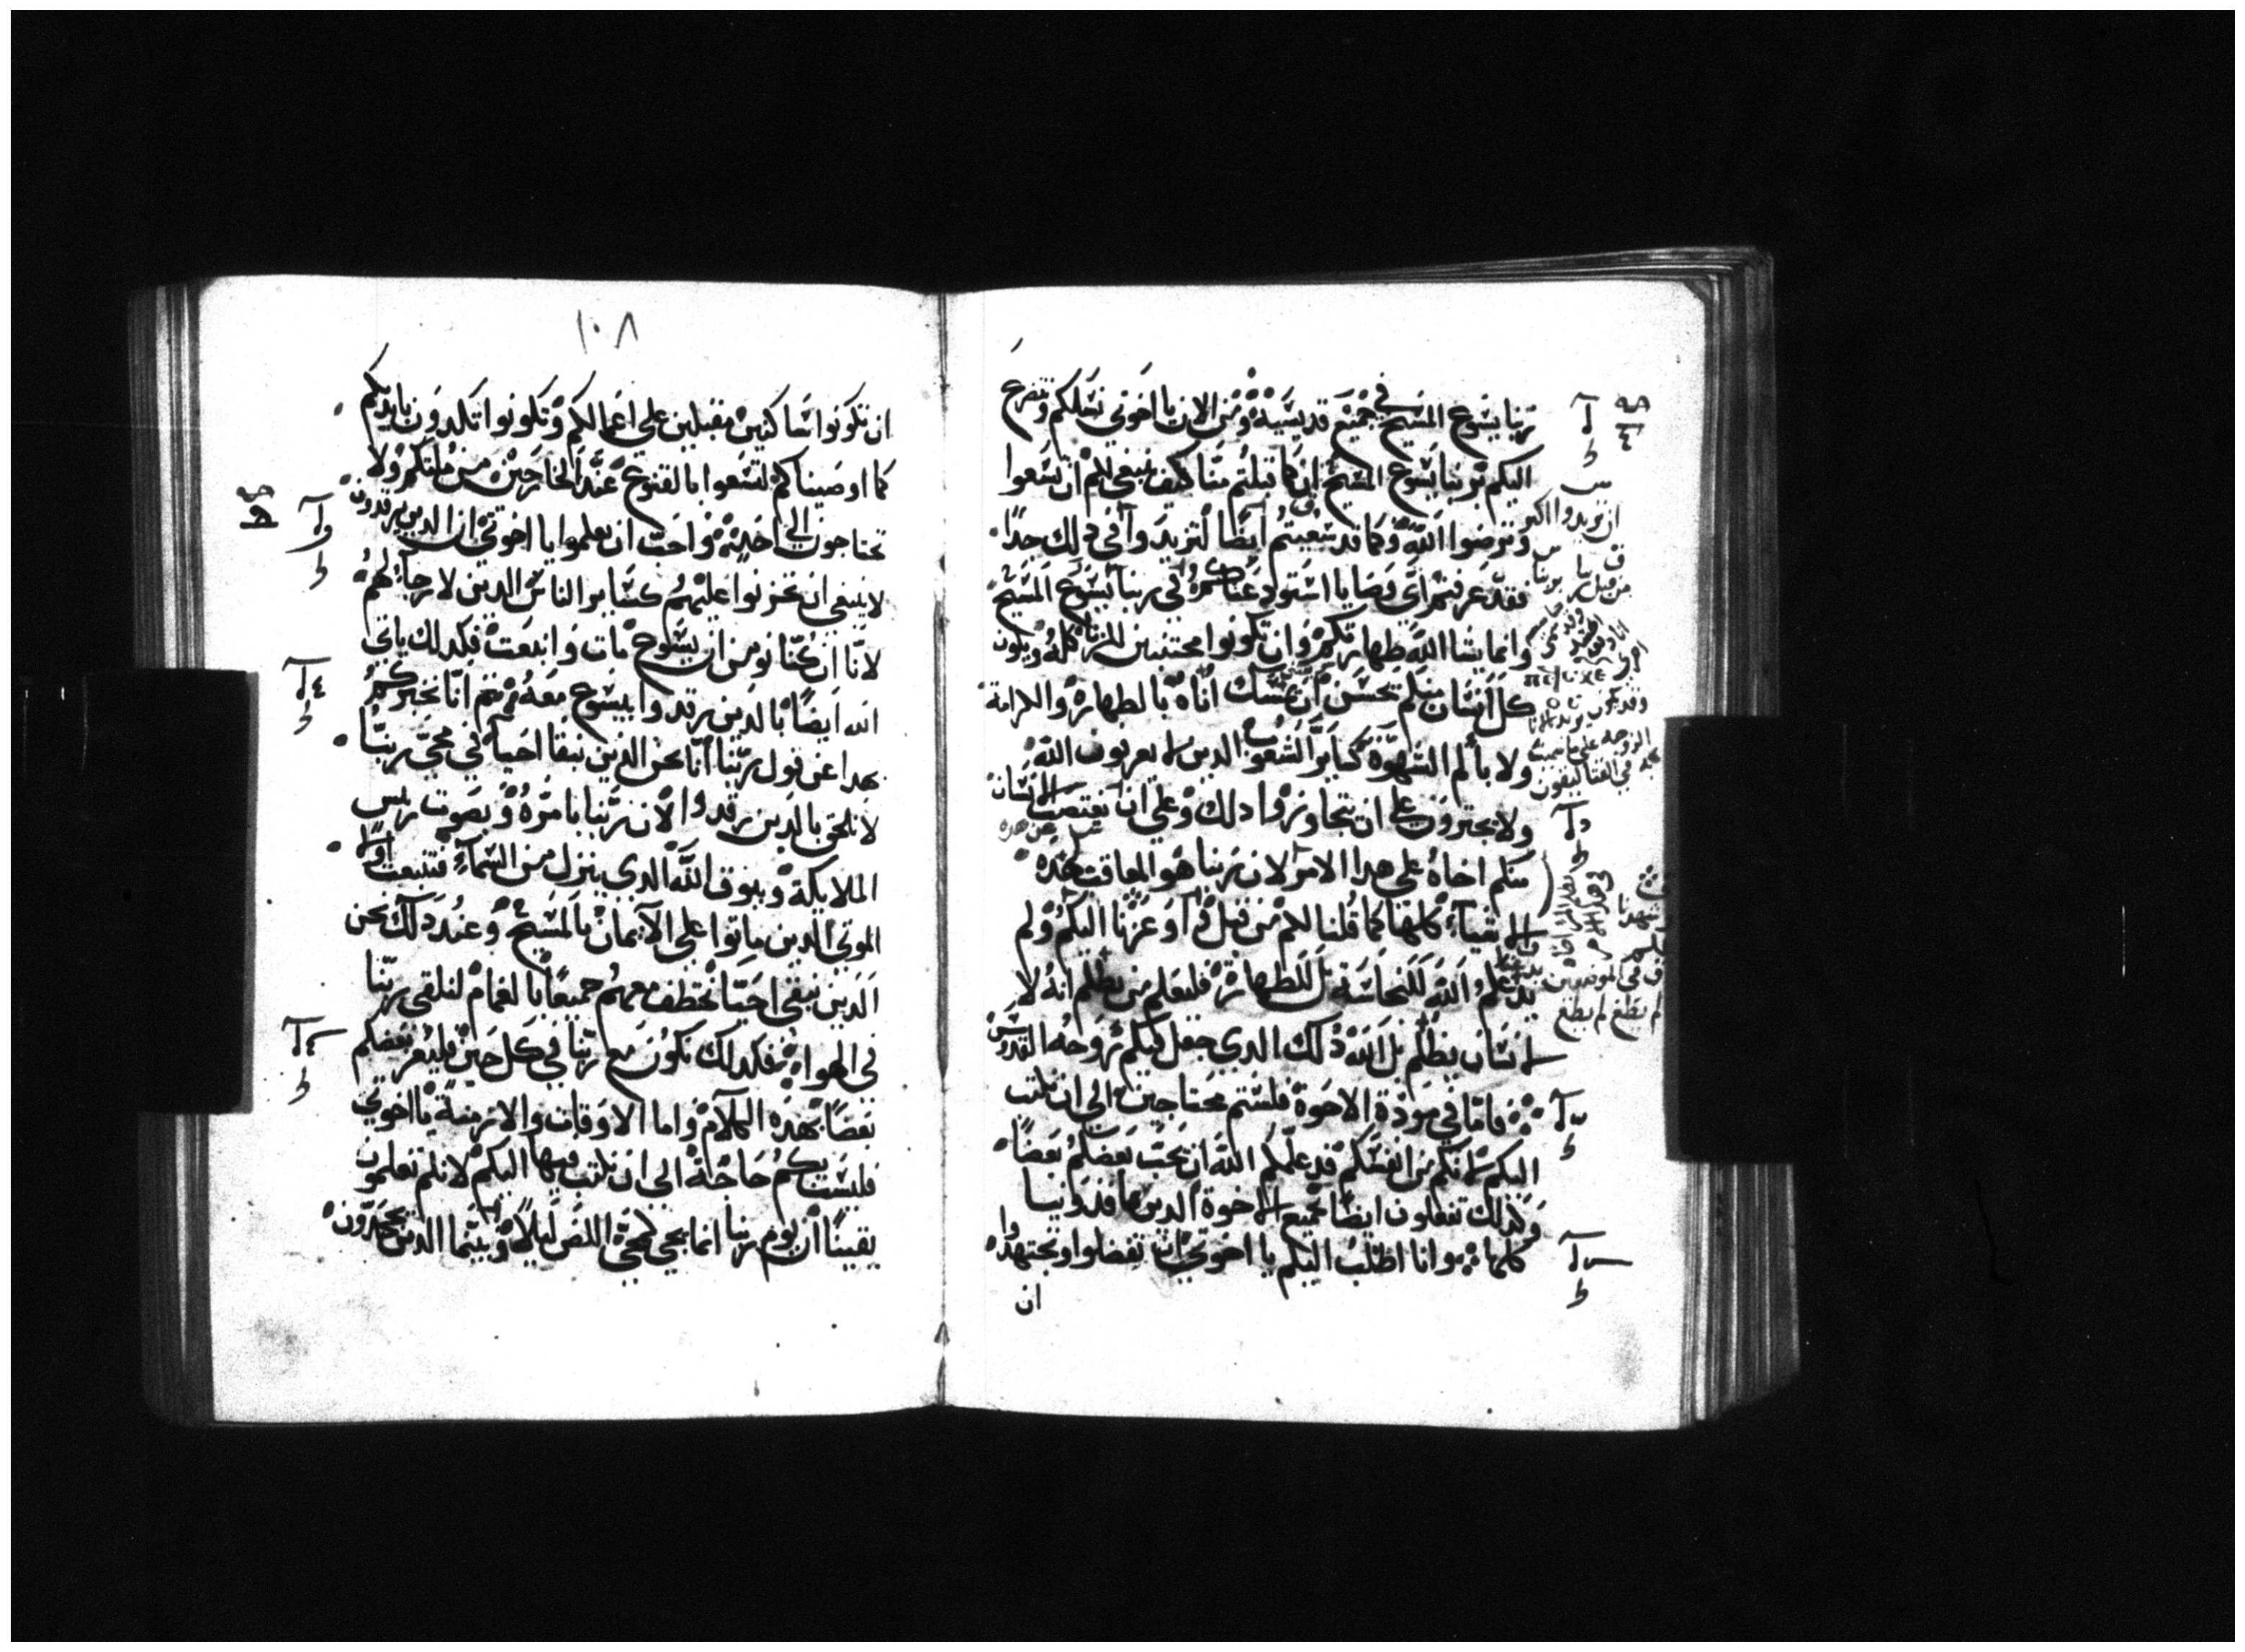 ربنا يشوع المسيح في جميع قديسيه ومن الان يا اخوتي نسلكم ونتضرع
اليكم بربنا يسوع المسيح ان كما قبلتم منا كيف ينبغي لكم ان تسعوا
وترضوا الله وكما قد سعيتم ايضا لتزيدوا في دلك جدا
فقد عرفتم اي وصايا استودعناكموه في ربنا يسوع المسيح
وانما يشا الله طهارتكم وان تكونوا مجتنبين للزنا كله ويكون
كل انسان منكم يحسن ان يمسك اناه بالطهارة والكرامة
ولا بالم الشهوة كساير الشعوب الدين لا يعرفون الله
ولا يجترون على ان تتجاوزوا دلك وعلى ان يغتصب الانسان
منكم اخاه على هدا الامر لان ربنا هو المعاقب عن هده
الاشياء كلها كما قلنا لكم من قبل واوعزنا اليكم ولم
يدعكم الله للنجاسة بل للطهارة فليعلم من يظلم انه لا
انسان يظلم بل الله دلك الدي جعل فيكم روحه القدوس
فاما في مودة الاخوة فلستم محتاجين الى ان نكتب
اليكم لانكم من انفسكم قد علمكم الله ان يحب بعضكم بعضا
وكدلك تفعلون ايضا بجميع الاخوة الدين بماقدونيا
كلها وانا اطلب اليكم يا اخوتي ان تفضلوا وتجتهدوا
ان
١٠٨
ان تكونوا ساكنين مقبلين على اعمالكم وتكونوا تكدون بايديكم
كما اوصيناكم لتسعوا بالقنوع عند الخارجين من ملتكم ولا
تحتاجون الى احد واحب ان تعلموا يا اخوتي ان الدين يرقدون
لا ينبغي ان تحزنوا عليهم كساير الناس الدين لا رجاء لهم
لانا ان كنا نومن ان يسوع مات وانبعث فكدلك ياتي
الله ايضا بالدين يرقدوا بيسوع معه ثم انا نخبركم
بهدا عن قول ربنا انا نحن الدين نبقا احيا في مجي ربنا
لا نلحق بالدين رقدوا لان ربنا بامره وبصوت ريس
الملايكة وببوق الله الدي ينزل من السماء فتنبعث اولا
الموتي الدين ماتوا على الايمان بالمسيح وعند دلك نحن
الدين نبقي احيا نختطف معهم جميعا بالغمام لنلقي ربنا
في الهواء فكدلك نكون مع ربنا في كل حين فليعز بعضكم
بعضا بهده الكلام واما الاوقات والازمنة يا اخوتي
فليست بكم حاجة الى ان نكتب فيها اليكم لانكم تعلمون
يقينا ان يوم ربنا انما يجي كمجي اللص ليلا وبينما الدين يجحدون